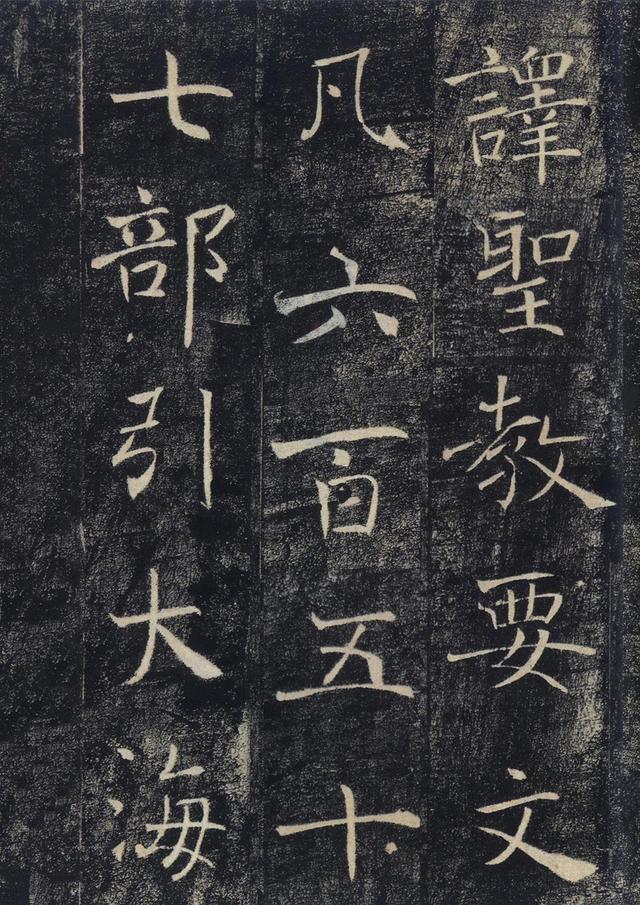 譯聖教要文
凡六百五十
七部引大海